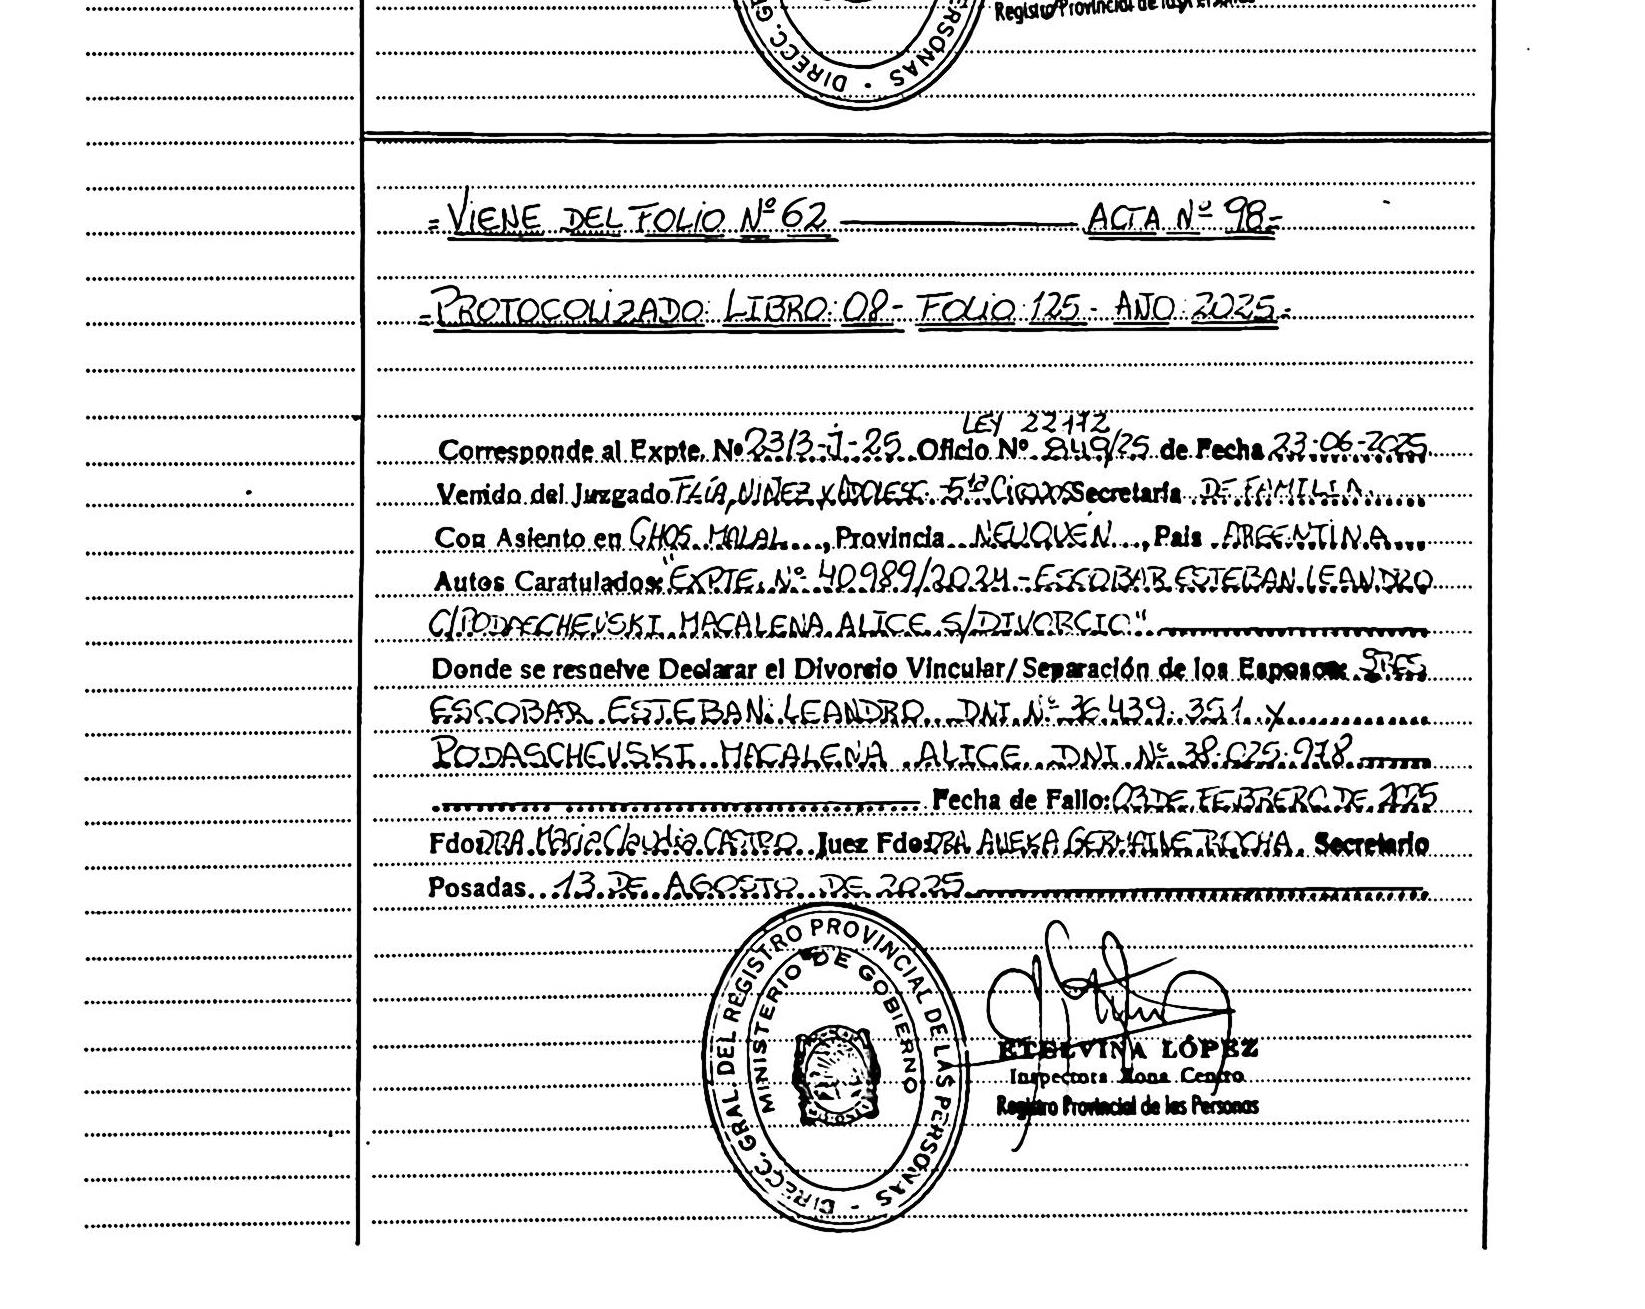 DIRECC. GR PERSONAS -
Registro Provincial de las Personas
= VIENE DEL FOLIO Nº 62 ACTA Nº 98 =
= PROTOCOLIZADO: LIBRO: 08 - FOLIO: 125 - AÑO: 2025 =
LEY 22172
Corresponde al Expte. Nº 2313-J-25 Oficio Nº 849/25 de Fecha 23-06-2025
Venido del Juzgado FLÍA, NIÑEZ Y ADOLESC. 5ta Secretaría DE FAMILIA
Con Asiento en CHOS MALAL, Provincia NEUQUÉN, País ARGENTINA
Autos Caratulados: "EXPTE. Nº 40989/2024 - ESCOBAR ESTEBAN LEANDRO
C/PODAECHEVSKI MACALENA ALICE S/DIVORCIO"
Donde se resuelve Declarar el Divorcio Vincular/Separación de los Esposos: SRES
ESCOBAR ESTEBAN LEANDRO DNI Nº 36.439.351 Y
PODASCHEVSKI MACALENA ALICE DNI Nº 38.025.978
Fecha de Fallo: 03 DE FEBRERO DE 2025
Fdo: DRA. Maria Claudia CASTRO Juez Fdo: DRA GERMAINE ROCHA Secretario
Posadas 13 DE AGOSTO DE 2025
DIRECC. GRAL. DEL REGISTRO PROVINCIAL DE LAS PERSONAS -
MINISTERIO DE GOBIERNO
ETELVINA LÓPEZ
Inspectora Zona Centro
Registro Provincial de las Personas